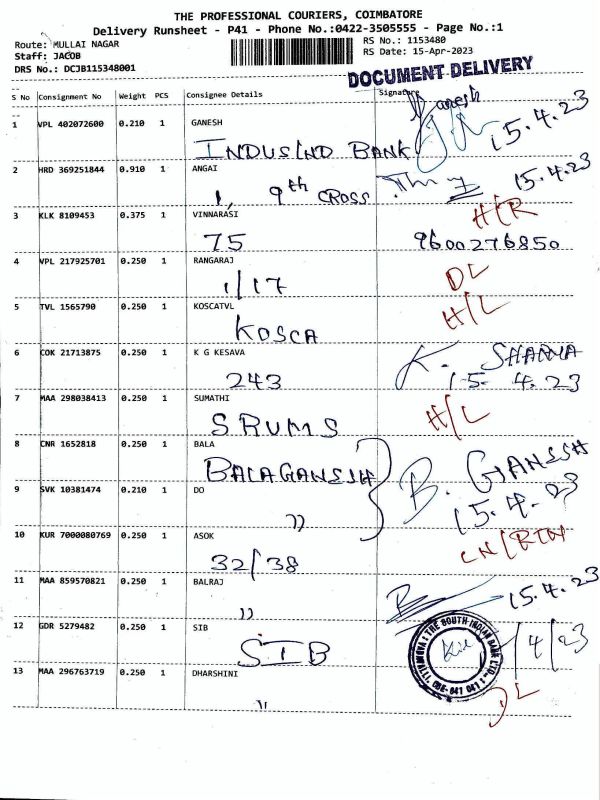 THE PROFESSIONAL COURIERS, COIMBATORE
Delivery Runsheet - P41 - Phone No.:0422-3505555 - Page No.:1
Route: MULLAI NAGAR
Staff: JACOB
DRS No.: DCJB115348001
RS No.: 1153480
RS Date: 15-Apr-2023
DOCUMENT DELIVERY
S No Consignment No Weight PCS Consignee Details Signature
1 VPL 402072600 0.210 1 GANESH
INDUSIND BANK Ganesh 15.4.23
2 HRD 369251844 0.910 1 ANGAI
1, 9th CROSS 15.4.23
3 KLK 8109453 0.375 1 VINNARASI H/R
75 9600276850
4 VPL 217925701 0.250 1 RANGARAJ
1/17 DL
5 TVL 1565790 0.250 1 KOSCATVL
KOSCA H/L
6 COK 21713875 0.250 1 K G KESAVA K. SHARMA
243 15. 4.23
7 MAA 298038413 0.250 1 SUMATHI
SRUMS H/L
8 CNR 1652818 0.250 1 BALA
BALAGANSSH B. GANSSH
9 SVK 10381474 0.210 1 DO
)) 15.4.23
10 KUR 7000080769 0.250 1 ASOK CN/RTN
32/38
11 MAA 859570821 0.250 1 BALRAJ
)) 15.4.23
12 GDR 5279482 0.250 1 SIB
SIB /4/23
THE SOUTH INDIAN BANK LTD. CBE-641 041
13 MAA 296763719 0.250 1 DHARSHINI
)) DL